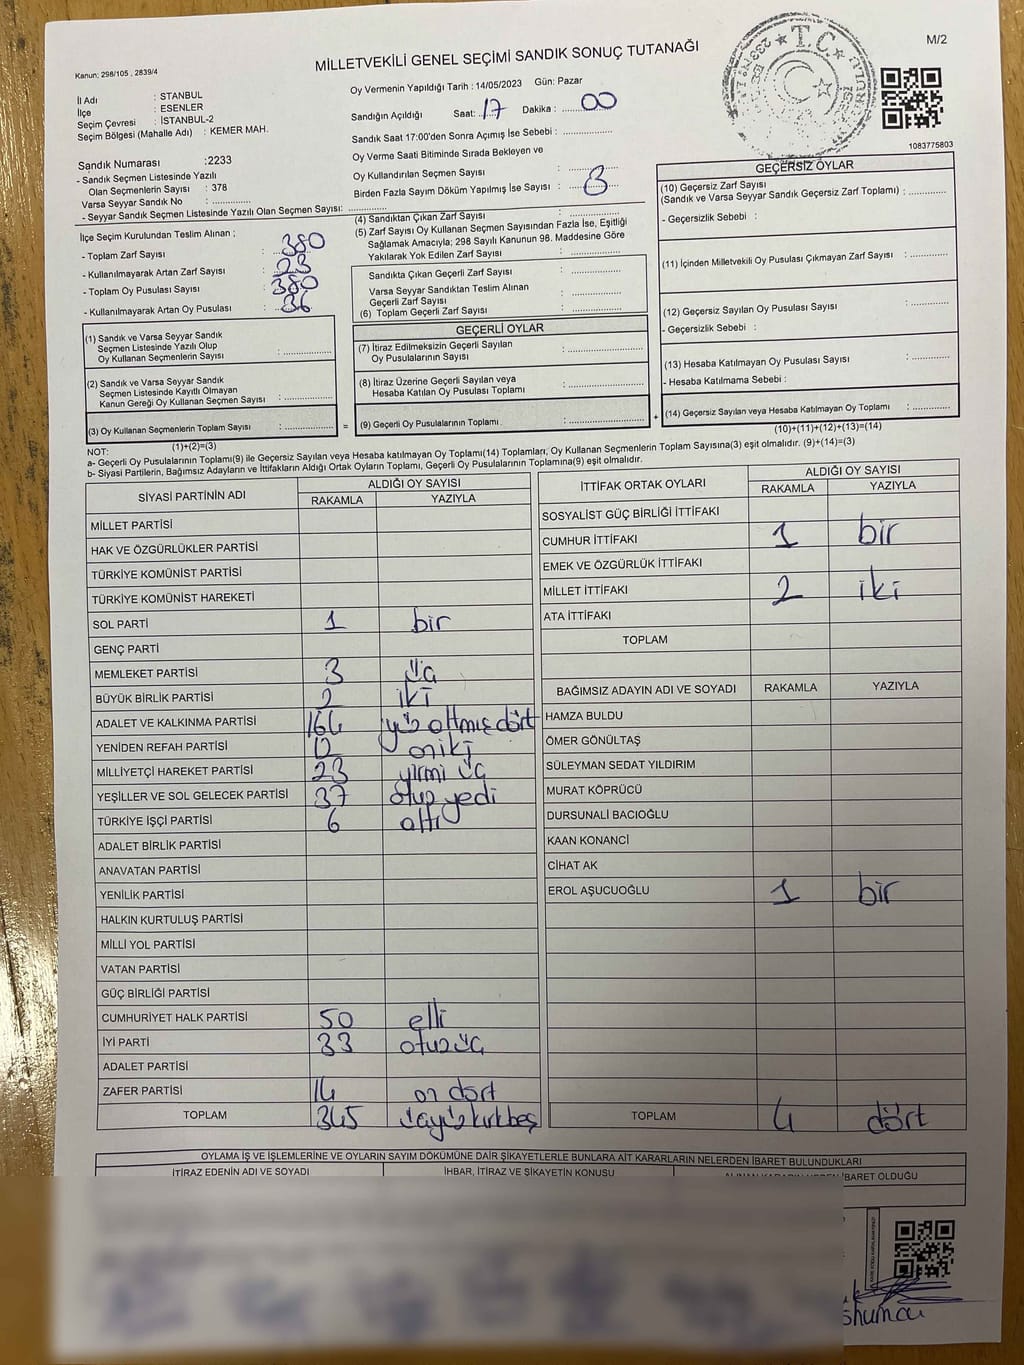 M/2
Kanun; 298/105 , 2839/4
MİLLETVEKİLİ GENEL SEÇİMİ SANDIK SONUÇ TUTANAĞI
T.C.
1083775803
İl Adı : STANBUL
İlçe : ESENLER
Seçim Çevresi : İSTANBUL-2
Seçim Bölgesi (Mahalle Adı) : KEMER MAH.
Sandık Numarası :2233
- Sandık Seçmen Listesinde Yazılı
Olan Seçmenlerin Sayısı : 378
Varsa Seyyar Sandık No : ..............
- Seyyar Sandık Seçmen Listesinde Yazılı Olan Seçmen Sayısı: ..............
Oy Vermenin Yapıldığı Tarih : 14/05/2023 Gün: Pazar
Sandığın Açıldığı Saat: 17 Dakika : 00
Sandık Saat 17:00'den Sonra Açımış İse Sebebi : ..............
Oy Verme Saati Bitiminde Sırada Bekleyen ve
Oy Kullandırılan Seçmen Sayısı : ..............
Birden Fazla Sayım Döküm Yapılmış İse Sayısı :
İlçe Seçim Kurulundan Teslim Alınan ;
- Toplam Zarf Sayısı : 380
- Kullanılmayarak Artan Zarf Sayısı : 23
- Toplam Oy Pusulası Sayısı : 380
- Kullanılmayarak Artan Oy Pusulası : 36
(1) Sandık ve Varsa Seyyar Sandık
Seçmen Listesinde Yazılı Olup
Oy Kullanan Seçmenlerin Sayısı : ..............
(2) Sandık ve Varsa Seyyar Sandık
Seçmen Listesinde Kayıtlı Olmayan
Kanun Gereği Oy Kullanan Seçmen Sayısı : ..............
(3) Oy Kullanan Seçmenlerin Toplam Sayısı : ..............
(1)+(2)=(3)
(4) Sandıktan Çıkan Zarf Sayısı : ..............
(5) Zarf Sayısı Oy Kullanan Seçmen Sayısından Fazla İse, Eşitliği
Sağlamak Amacıyla; 298 Sayılı Kanunun 98. Maddesine Göre
Yakılarak Yok Edilen Zarf Sayısı : ..............
Sandıkta Çıkan Geçerli Zarf Sayısı : ..............
Varsa Seyyar Sandıktan Teslim Alınan
Geçerli Zarf Sayısı : ..............
(6) Toplam Geçerli Zarf Sayısı : ..............
GEÇERLİ OYLAR
(7) İtiraz Edilmeksizin Geçerli Sayılan
Oy Pusulalarının Sayısı : ..............
(8) İtiraz Üzerine Geçerli Sayılan veya
Hesaba Katılan Oy Pusulası Toplamı : ..............
= (9) Geçerli Oy Pusulalarının Toplamı : .............. +
GEÇERSİZ OYLAR
(10) Geçersiz Zarf Sayısı
(Sandık ve Varsa Seyyar Sandık Geçersiz Zarf Toplamı) : ..............
- Geçersizlik Sebebi :
(11) İçinden Milletvekili Oy Pusulası Çıkmayan Zarf Sayısı : ..............
(12) Geçersiz Sayılan Oy Pusulası Sayısı : ..............
- Geçersizlik Sebebi :
(13) Hesaba Katılmayan Oy Pusulası Sayısı : ..............
- Hesaba Katılmama Sebebi :
(14) Geçersiz Sayılan veya Hesaba Katılmayan Oy Toplamı : ..............
(10)+(11)+(12)+(13)=(14)
NOT:
a- Geçerli Oy Pusulalarının Toplamı(9) ile Geçersiz Sayılan veya Hesaba katılmayan Oy Toplamı(14) Toplamları, Oy Kullanan Seçmenlerin Toplam Sayısına(3) eşit olmalıdır. (9)+(14)=(3)
b- Siyasi Partilerin, Bağımsız Adayların ve İttifakların Aldığı Ortak Oyların Toplamı, Geçerli Oy Pusulalarının Toplamına(9) eşit olmalıdır.
SİYASİ PARTİNİN ADI ALDIĞI OY SAYISI
RAKAMLA YAZIYLA
MİLLET PARTİSİ
HAK VE ÖZGÜRLÜKLER PARTİSİ
TÜRKİYE KOMÜNİST PARTİSİ
TÜRKİYE KOMÜNİST HAREKETİ
SOL PARTİ 1 bir
GENÇ PARTİ
MEMLEKET PARTİSİ 3 üç
BÜYÜK BİRLİK PARTİSİ 2 iki
ADALET VE KALKINMA PARTİSİ 164 yüz altmış dört
YENİDEN REFAH PARTİSİ 12 oniki
MİLLİYETÇİ HAREKET PARTİSİ 23 yirmi üç
YEŞİLLER VE SOL GELECEK PARTİSİ 37 otuz yedi
TÜRKİYE İŞÇİ PARTİSİ 6 altı
ADALET BİRLİK PARTİSİ
ANAVATAN PARTİSİ
YENİLİK PARTİSİ
HALKIN KURTULUŞ PARTİSİ
MİLLİ YOL PARTİSİ
VATAN PARTİSİ
GÜÇ BİRLİĞİ PARTİSİ
CUMHURİYET HALK PARTİSİ 50 elli
İYİ PARTİ 33 otuz üç
ADALET PARTİSİ
ZAFER PARTİSİ 14 on dört
TOPLAM 345 üçyüz kırkbeş
İTTİFAK ORTAK OYLARI ALDIĞI OY SAYISI
RAKAMLA YAZIYLA
SOSYALİST GÜÇ BİRLİĞİ İTTİFAKI
CUMHUR İTTİFAKI 1 bir
EMEK VE ÖZGÜRLÜK İTTİFAKI
MİLLET İTTİFAKI 2 iki
ATA İTTİFAKI
TOPLAM
BAĞIMSIZ ADAYIN ADI VE SOYADI RAKAMLA YAZIYLA
HAMZA BULDU
ÖMER GÖNÜLTAŞ
SÜLEYMAN SEDAT YILDIRIM
MURAT KÖPRÜCÜ
DURSUNALİ BACIOĞLU
KAAN KONANCİ
CİHAT AK
EROL AŞUCUOĞLU 1 bir
TOPLAM 4 dört
OYLAMA İŞ VE İŞLEMLERİNE VE OYLARIN SAYIM DÖKÜMÜNE DAİR ŞİKAYETLERLE BUNLARA AİT KARARLARIN NELERDEN İBARET BULUNDUKLARI
İTİRAZ EDENİN ADI VE SOYADI İHBAR, İTİRAZ VE ŞİKAYETİN KONUSU İBARET OLDUĞU